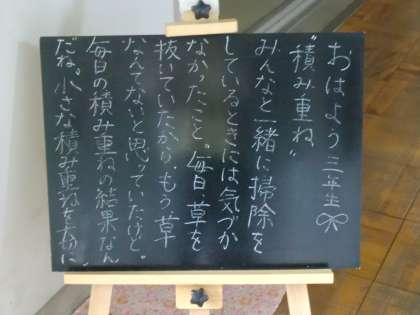 おはよう三年生
“積み重ね”
みんなと一緒に掃除を
しているときには気づか
なかったこと。毎日草を
抜いていたから、もう草
なんてないと思っていたけど。
毎日の積み重ねの結果なん
だね。小さな積み重ねを大切に